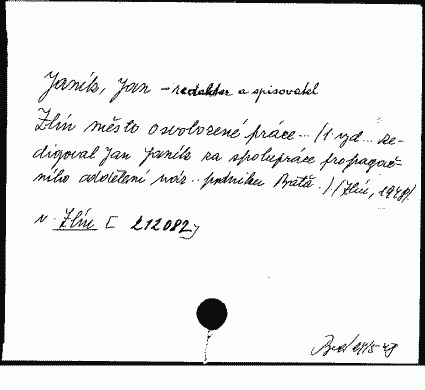 Janík, Jan - redaktor a spisovatel
Zlín město osvobozené práce... (1 vyd... re-
digoval Jan Janík za spolupráce propagač-
ního oddělení nár.. podniku Baťa.) (Zlín, 1948).
v. Zlín [ 212082]